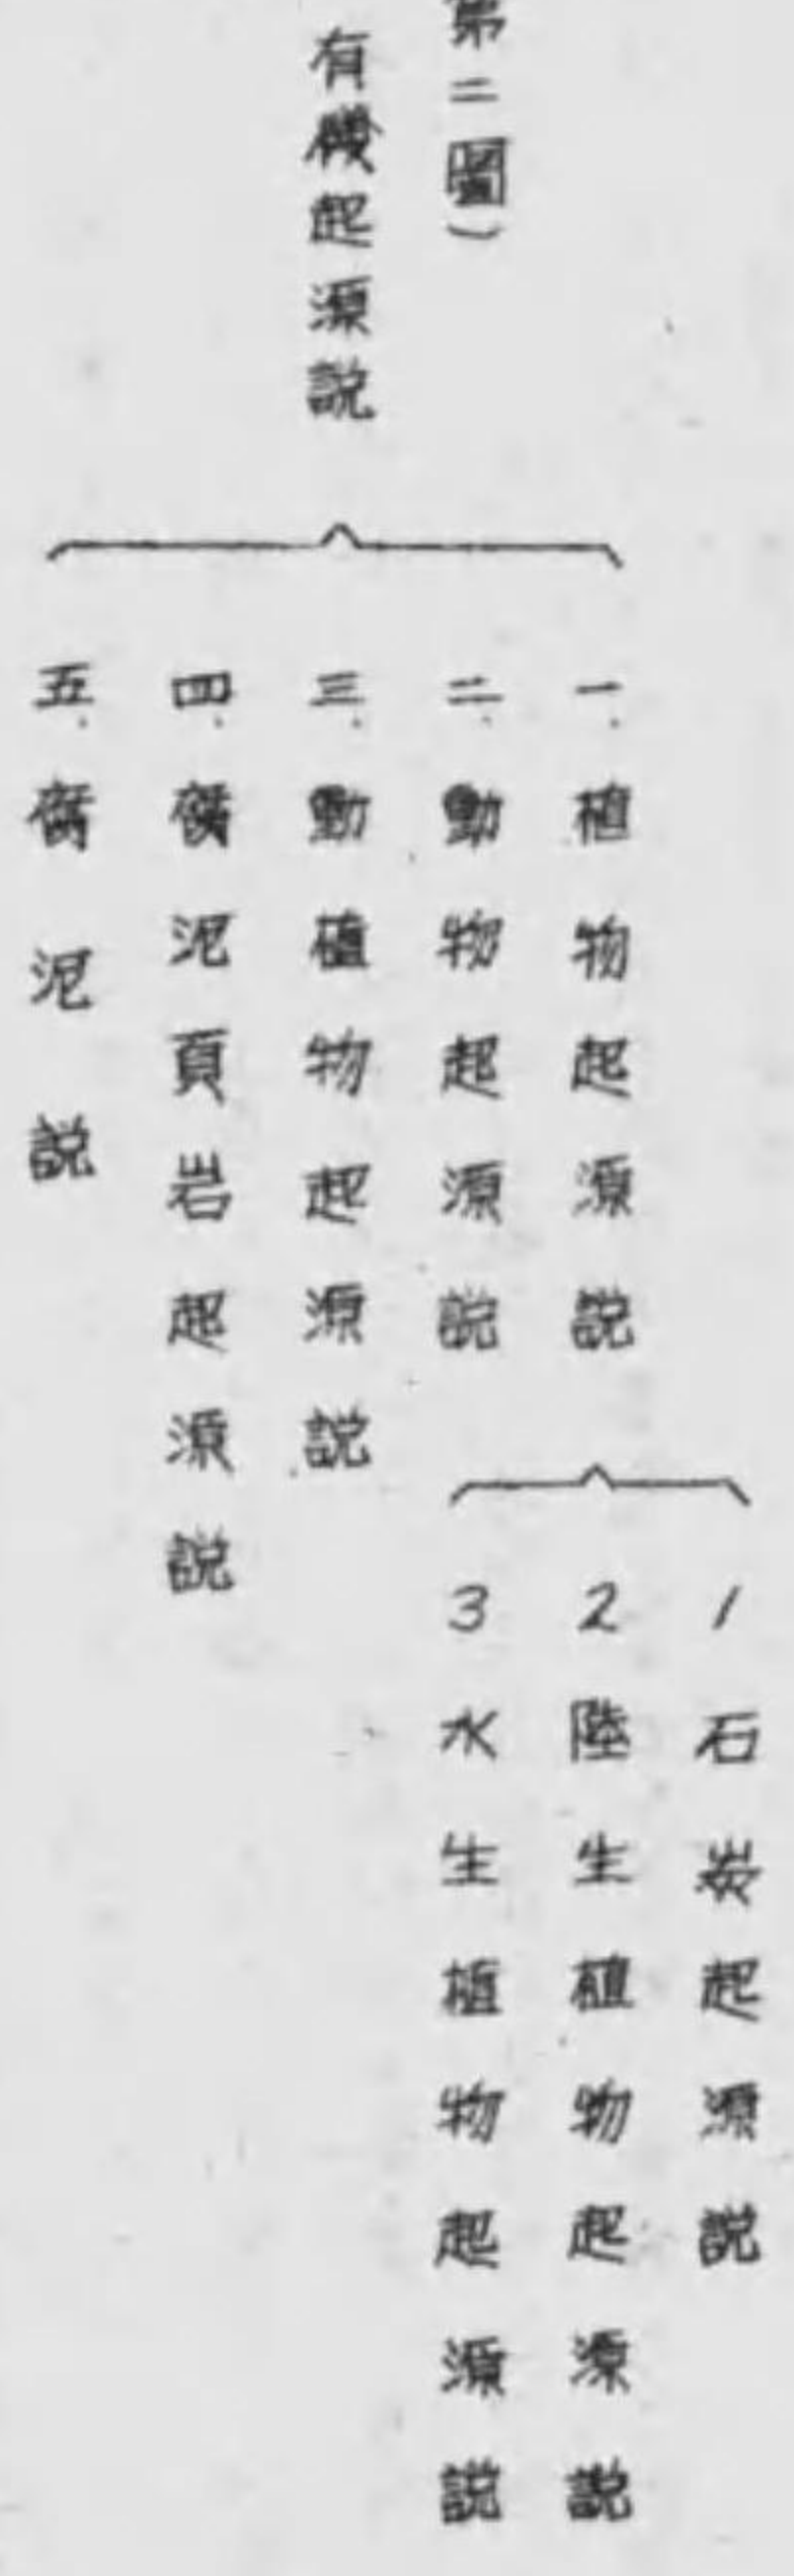 第二圖)
有機起源說
一. 植物起源說
1 石炭起源說
2 陸生植物起源說
3 水生植物起源說
二. 動物起源說
三. 動植物起源說
四. 腐泥頁岩起源說
五. 腐泥說